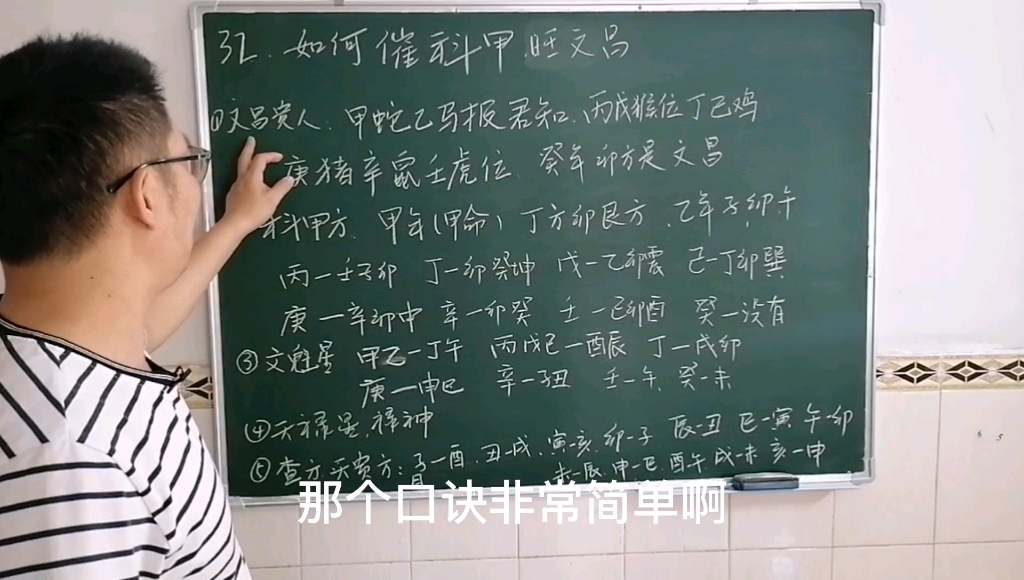 32.如何催科甲旺文昌
①文昌贵人.甲蛇乙马报君知.丙戊猴位丁己鸡
庚猪辛鼠壬虎位.癸年卯方是文昌
科甲方.甲年(甲命)丁方卯艮方.乙年子,卯,午
丙一壬子卯 丁一卯癸坤 戊一乙卯震 己一丁卯巽
庚一辛卯申 辛一卯癸 壬一己卯酉 癸一没有
③文魁星 甲乙一丁午 丙戊己一酉辰 丁一戌卯
庚一申巳 辛一子丑 壬一午.癸一未
④天禄星,禄神
⑤查 天贵方:子一酉.丑一戌,寅一亥.卯一子 辰一丑 巳一寅 午一卯
未一辰.申一巳.酉午戌一未 亥一申
那个口诀非常简单啊